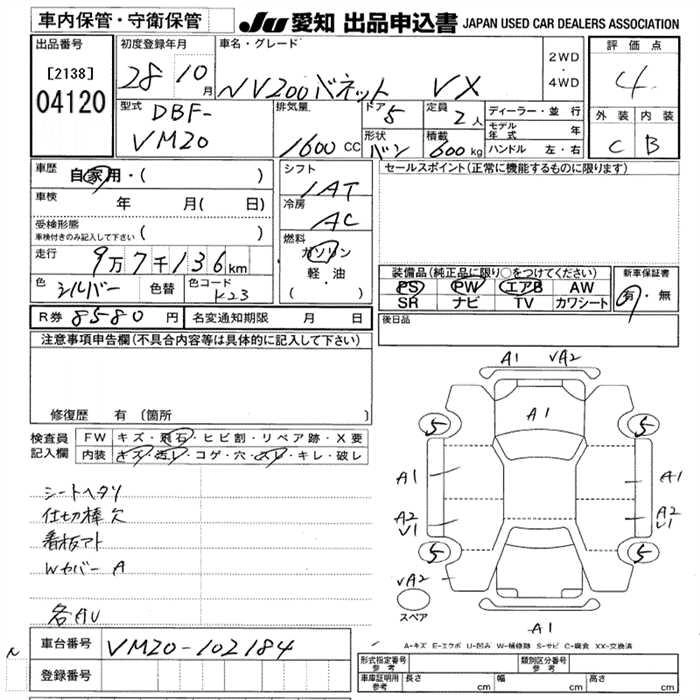 車内保管・守衛保管
JU 愛知 出品申込書 JAPAN USED CAR DEALERS ASSOCIATION
出品番号
[2138]
04120
初度登録年月
28年 10月
車名・グレード
NV200バネット VX
2WD
・
4WD
評価点
4
外装 内装
C B
型式 DBF-
VM20
排気量
1600 CC
ドア 5
形状 バン
定員 2人
積載 600 kg
ディーラー・並行
モデル年式 年
ハンドル 左・右
車歴 自家用・( )
車検 年 月( 日)
受検形態
車検付きのみ記入して下さい ( )
走行 9万7千136km
色 シルバー 色替 色コード K23
シフト
1AT
冷房
AC
燃料
ガソリン
軽・油
( ・ )
セールスポイント(正常に機能するものに限ります)
装備品(純正品に限り○をつけてください)
PS PW エアB AW
SR ナビ TV カワシート
新車保証書
有・無
R券 8580 円 名変通知期限 月 日
後日品
注意事項申告欄(不具合内容等は具体的に記入して下さい)
修復歴 有(箇所 )
検査員
記入欄
FW キズ・飛石・ヒビ割・リペア跡・X要
内装 キズ・汚レ・コゲ・穴・スレ・キレ・破レ
シートヘタリ
仕切棒欠
看板アト
Wカバー A
各AU
A1 √A2
A1
5 5
A1 A1
A2 A2
√1 √1
5 5
√A2
スペア
A1
A-キズ E-エクボ U-凹み W-補修跡 S-サビ C-腐食 XX-交換済
車台番号 VM20-102184
登録番号
形式指定番号
参考
類別区分番号
参考
車庫証明用
参考
長さ cm 幅 cm 高さ cm